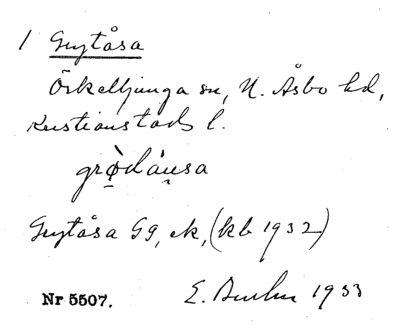 1 Grytåsa
Örkelljunga sn, N. Åsbo hd,
Kristianstads l.
grø̀dåu̯sa
Grytåsa Gg, ek, (kb 1932)
Nr 5507. E. 1933